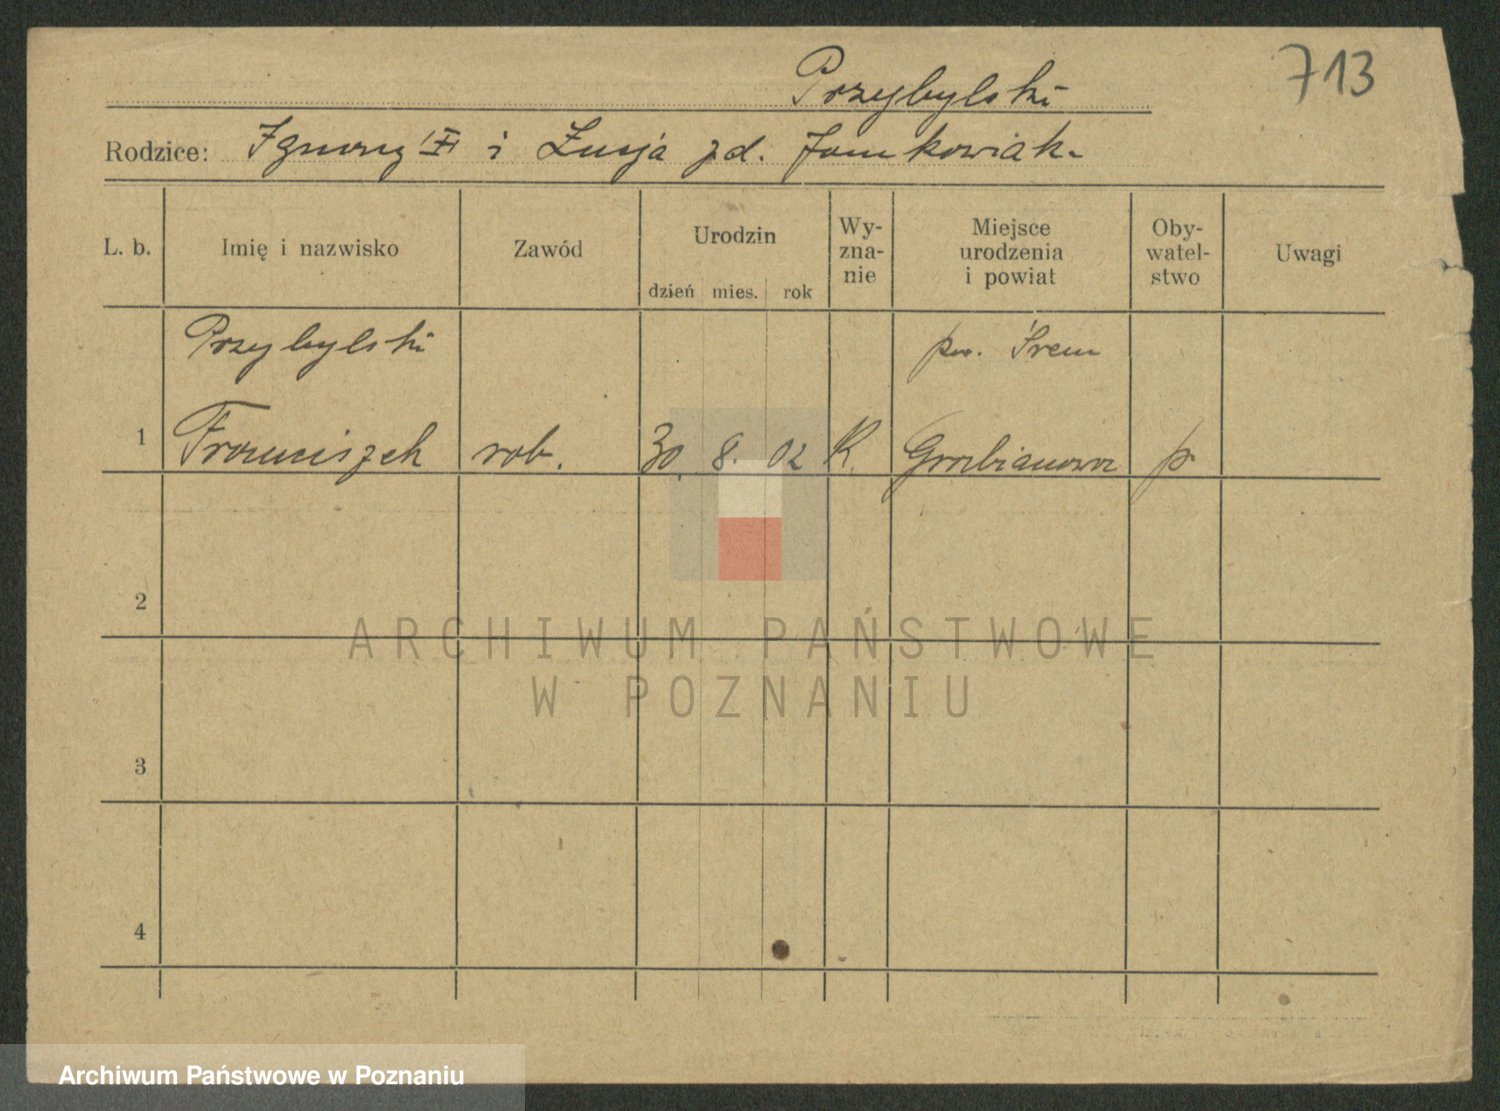 713
Przybylski
Rodzice: Ignacy i Łucja zd. Jankowiak
L. b. Imię i nazwisko Zawód Urodzin dzień mies. rok Wy-zna-nie Miejsce urodzenia i powiat Oby-watel-stwo Uwagi
Przybylski pow. Śrem
1 Franciszek rob. 30 8. 02 K. Grabianowo p
2
ARCHIWUM PAŃSTWOWE
W POZNANIU
3
4
Archiwum Państwowe w Poznaniu